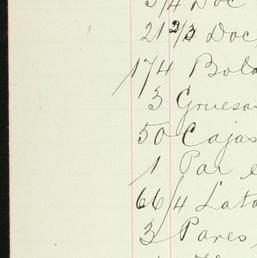 3/4 Doc
21 2/3 Doc
174 Bola
3 Gruesas
50 Cajas
1 Par
66/4 Lata
3 Pares